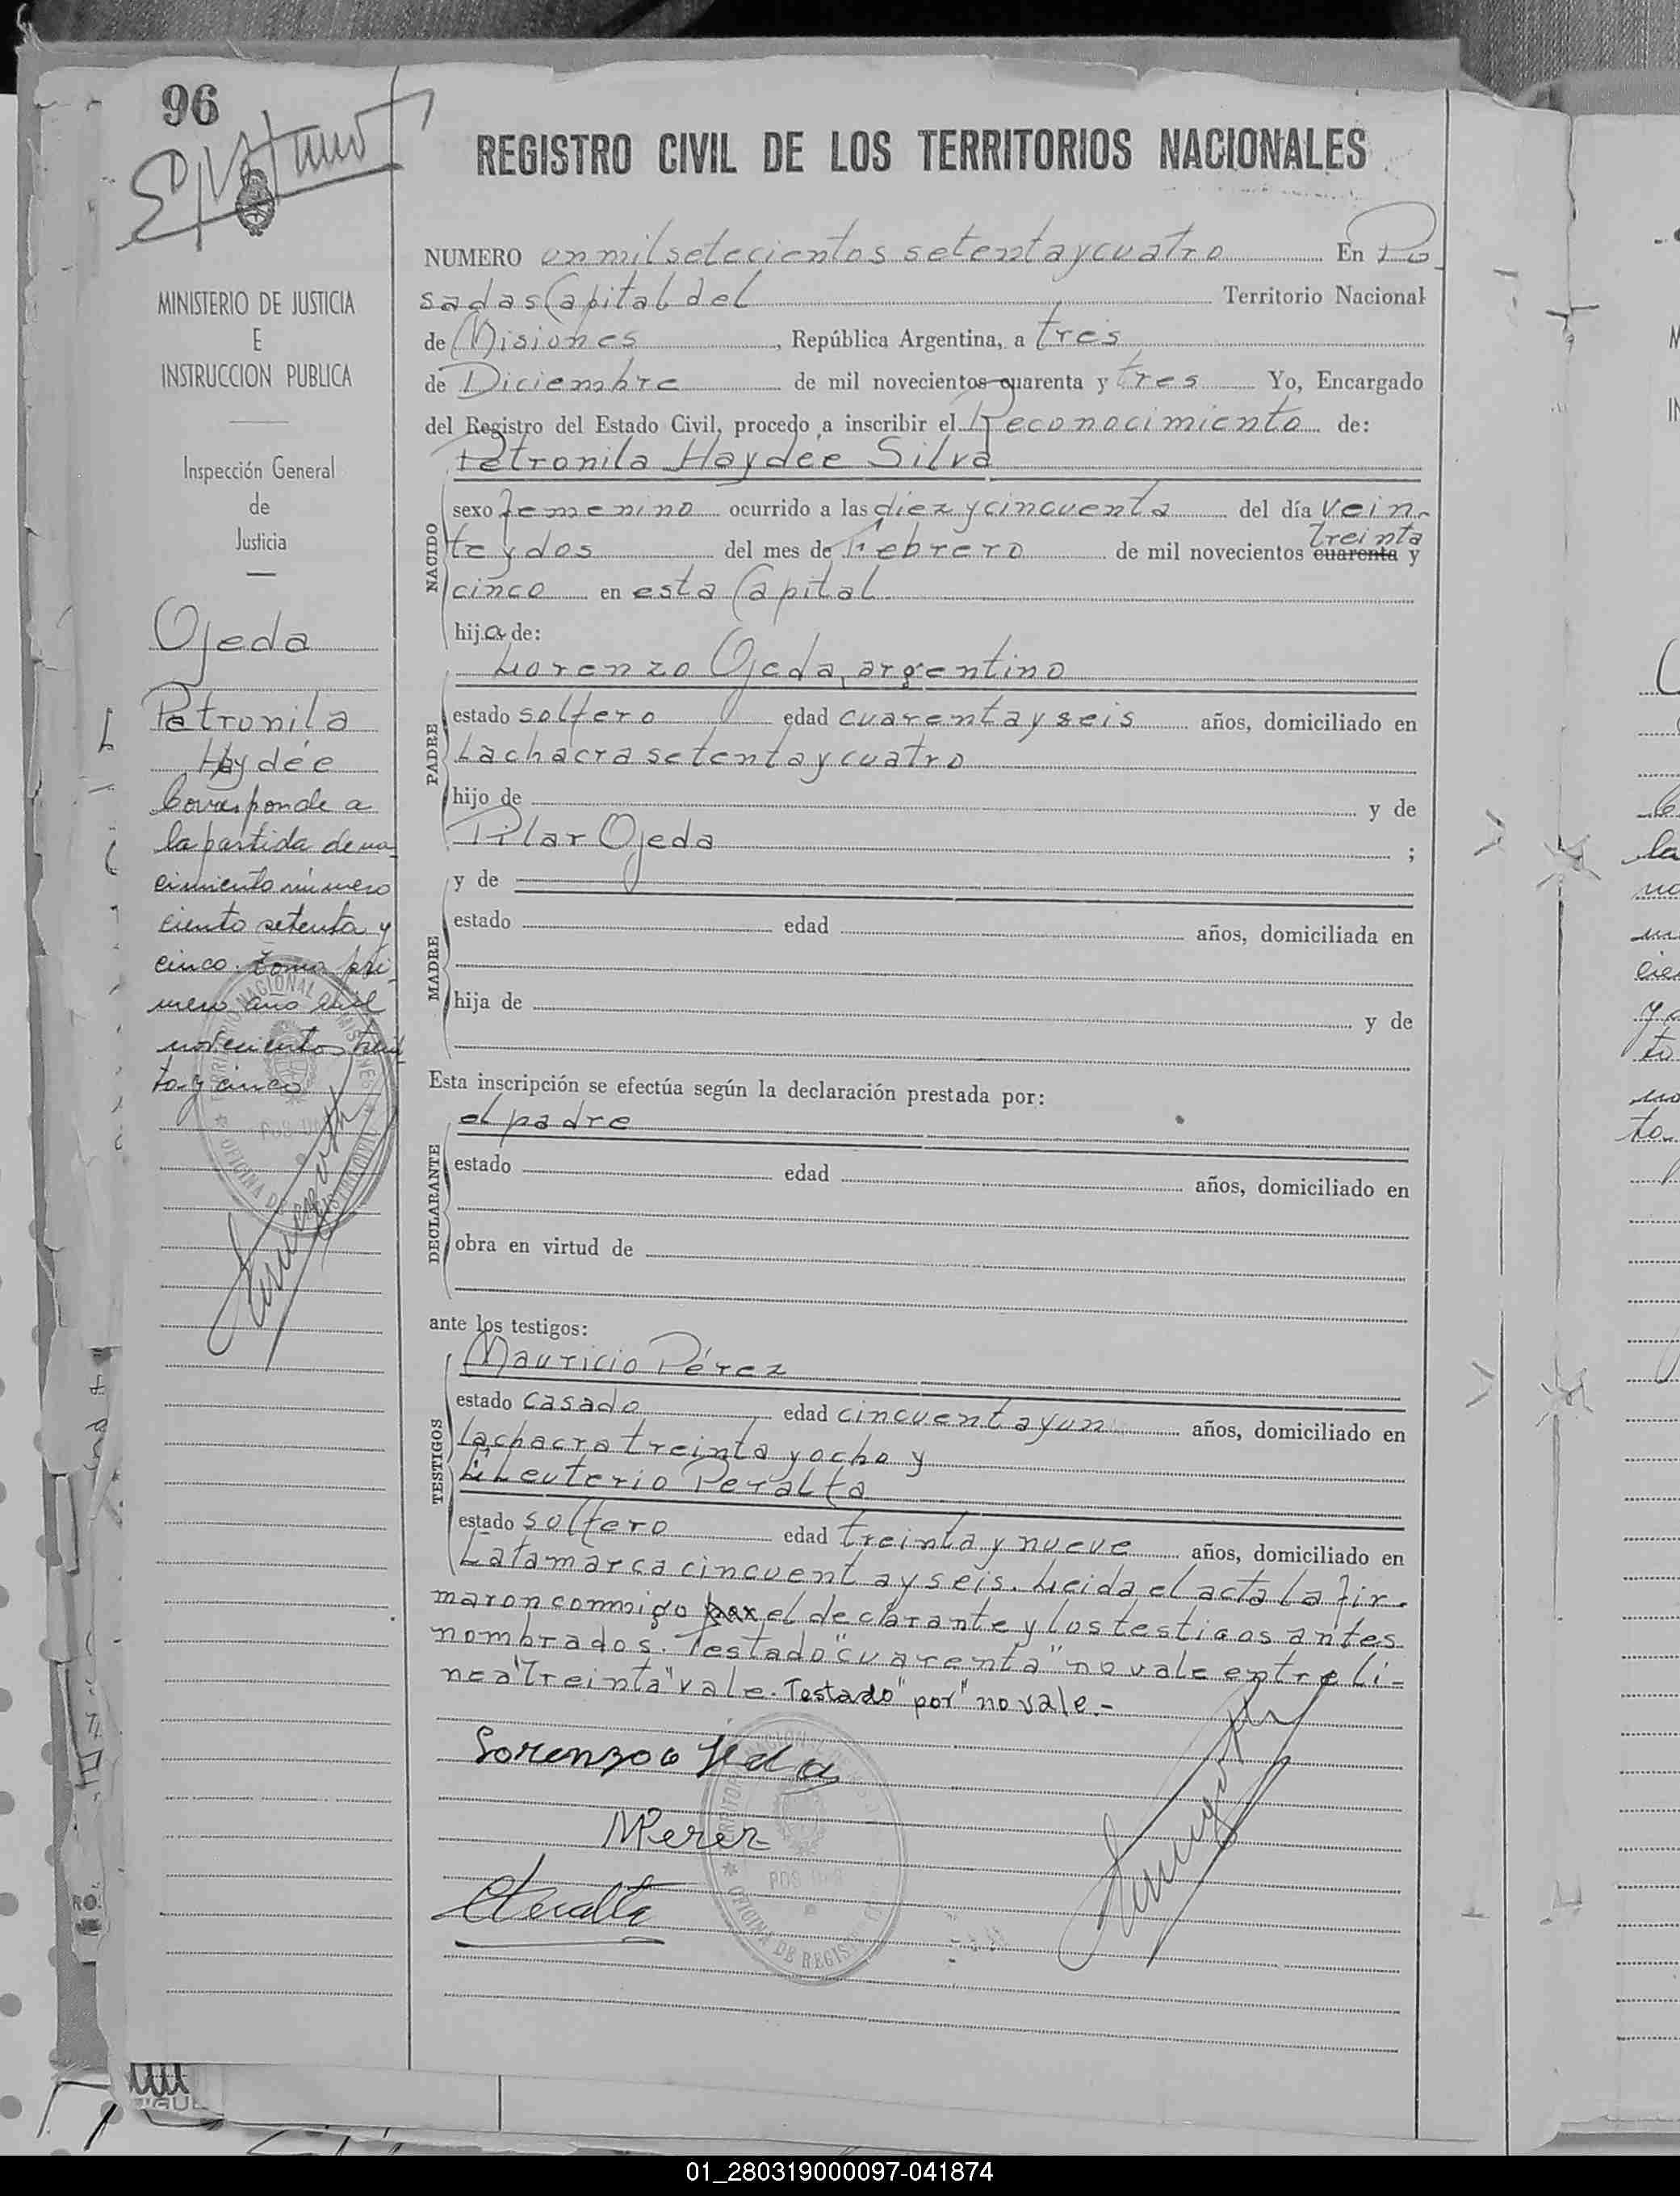 96
REGISTRO CIVIL DE LOS TERRITORIOS NACIONALES
MINISTERIO DE JUSTICIA
E
INSTRUCCION PUBLICA
Inspección General
de
Justicia
Ojeda
Petronila
Haydée
Corresponde a
la partida de na-
cimiento número
ciento setenta y
cinco. tomo pri-
mero año mil
novecientos trein
ta y cinco
NUMERO un mil setecientos setenta y cuatro En Po
sadas Capital del Territorio Nacional
de Misiones, República Argentina, a tres
de Diciembre de mil novecientos cuarenta y tres Yo, Encargado
del Registro del Estado Civil, procedo a inscribir el Reconocimiento de:
Petronila Haydée Silva
NACIDO
sexo femenino ocurrido a las diez y cincuenta del día vein-
treinta
te y dos del mes de Febrero de mil novecientos cuarenta y
cinco en esta Capital
hija de:
Lorenzo Ojeda, argentino
PADRE
estado soltero edad cuarenta y seis años, domiciliado en
La chacra setenta y cuatro
hijo de y de
Pilar Ojeda ;
y de
MADRE
estado edad años, domiciliada en
hija de y de
Esta inscripción se efectúa según la declaración prestada por:
el padre
DECLARANTE
estado edad años, domiciliado en
obra en virtud de
ante los testigos:
Mauricio Pérez
TESTIGOS
estado casado edad cincuenta y un años, domiciliado en
la chacra treinta y ocho y
Eleuterio Peralta
estado soltero edad treinta y nueve años, domiciliado en
Catamarca cincuenta y seis. Leida el acta la fir-
maron conmigo por el declarante y los testigos antes
nombrados. Testado "cuarenta" no vale entre lí-
nea "treinta" vale. Testado "por" no vale.-
Lorenzo ojeda
MPerez
EPeralta
01_280319000097-041874